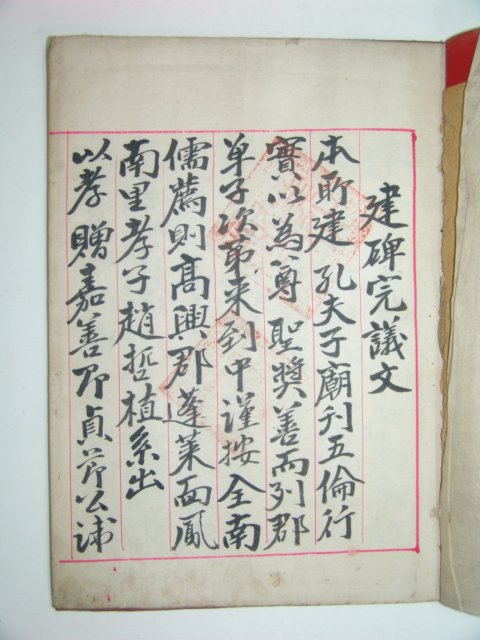 建碑完議文
本所建 孔夫子廟刊五倫行
實以為尊 聖奬善而列郡
單子次第来到中謹按全南
儒薦則高興郡蓬萊面鳳
南里孝子趙哲植系出
以孝 贈嘉善即貞節公